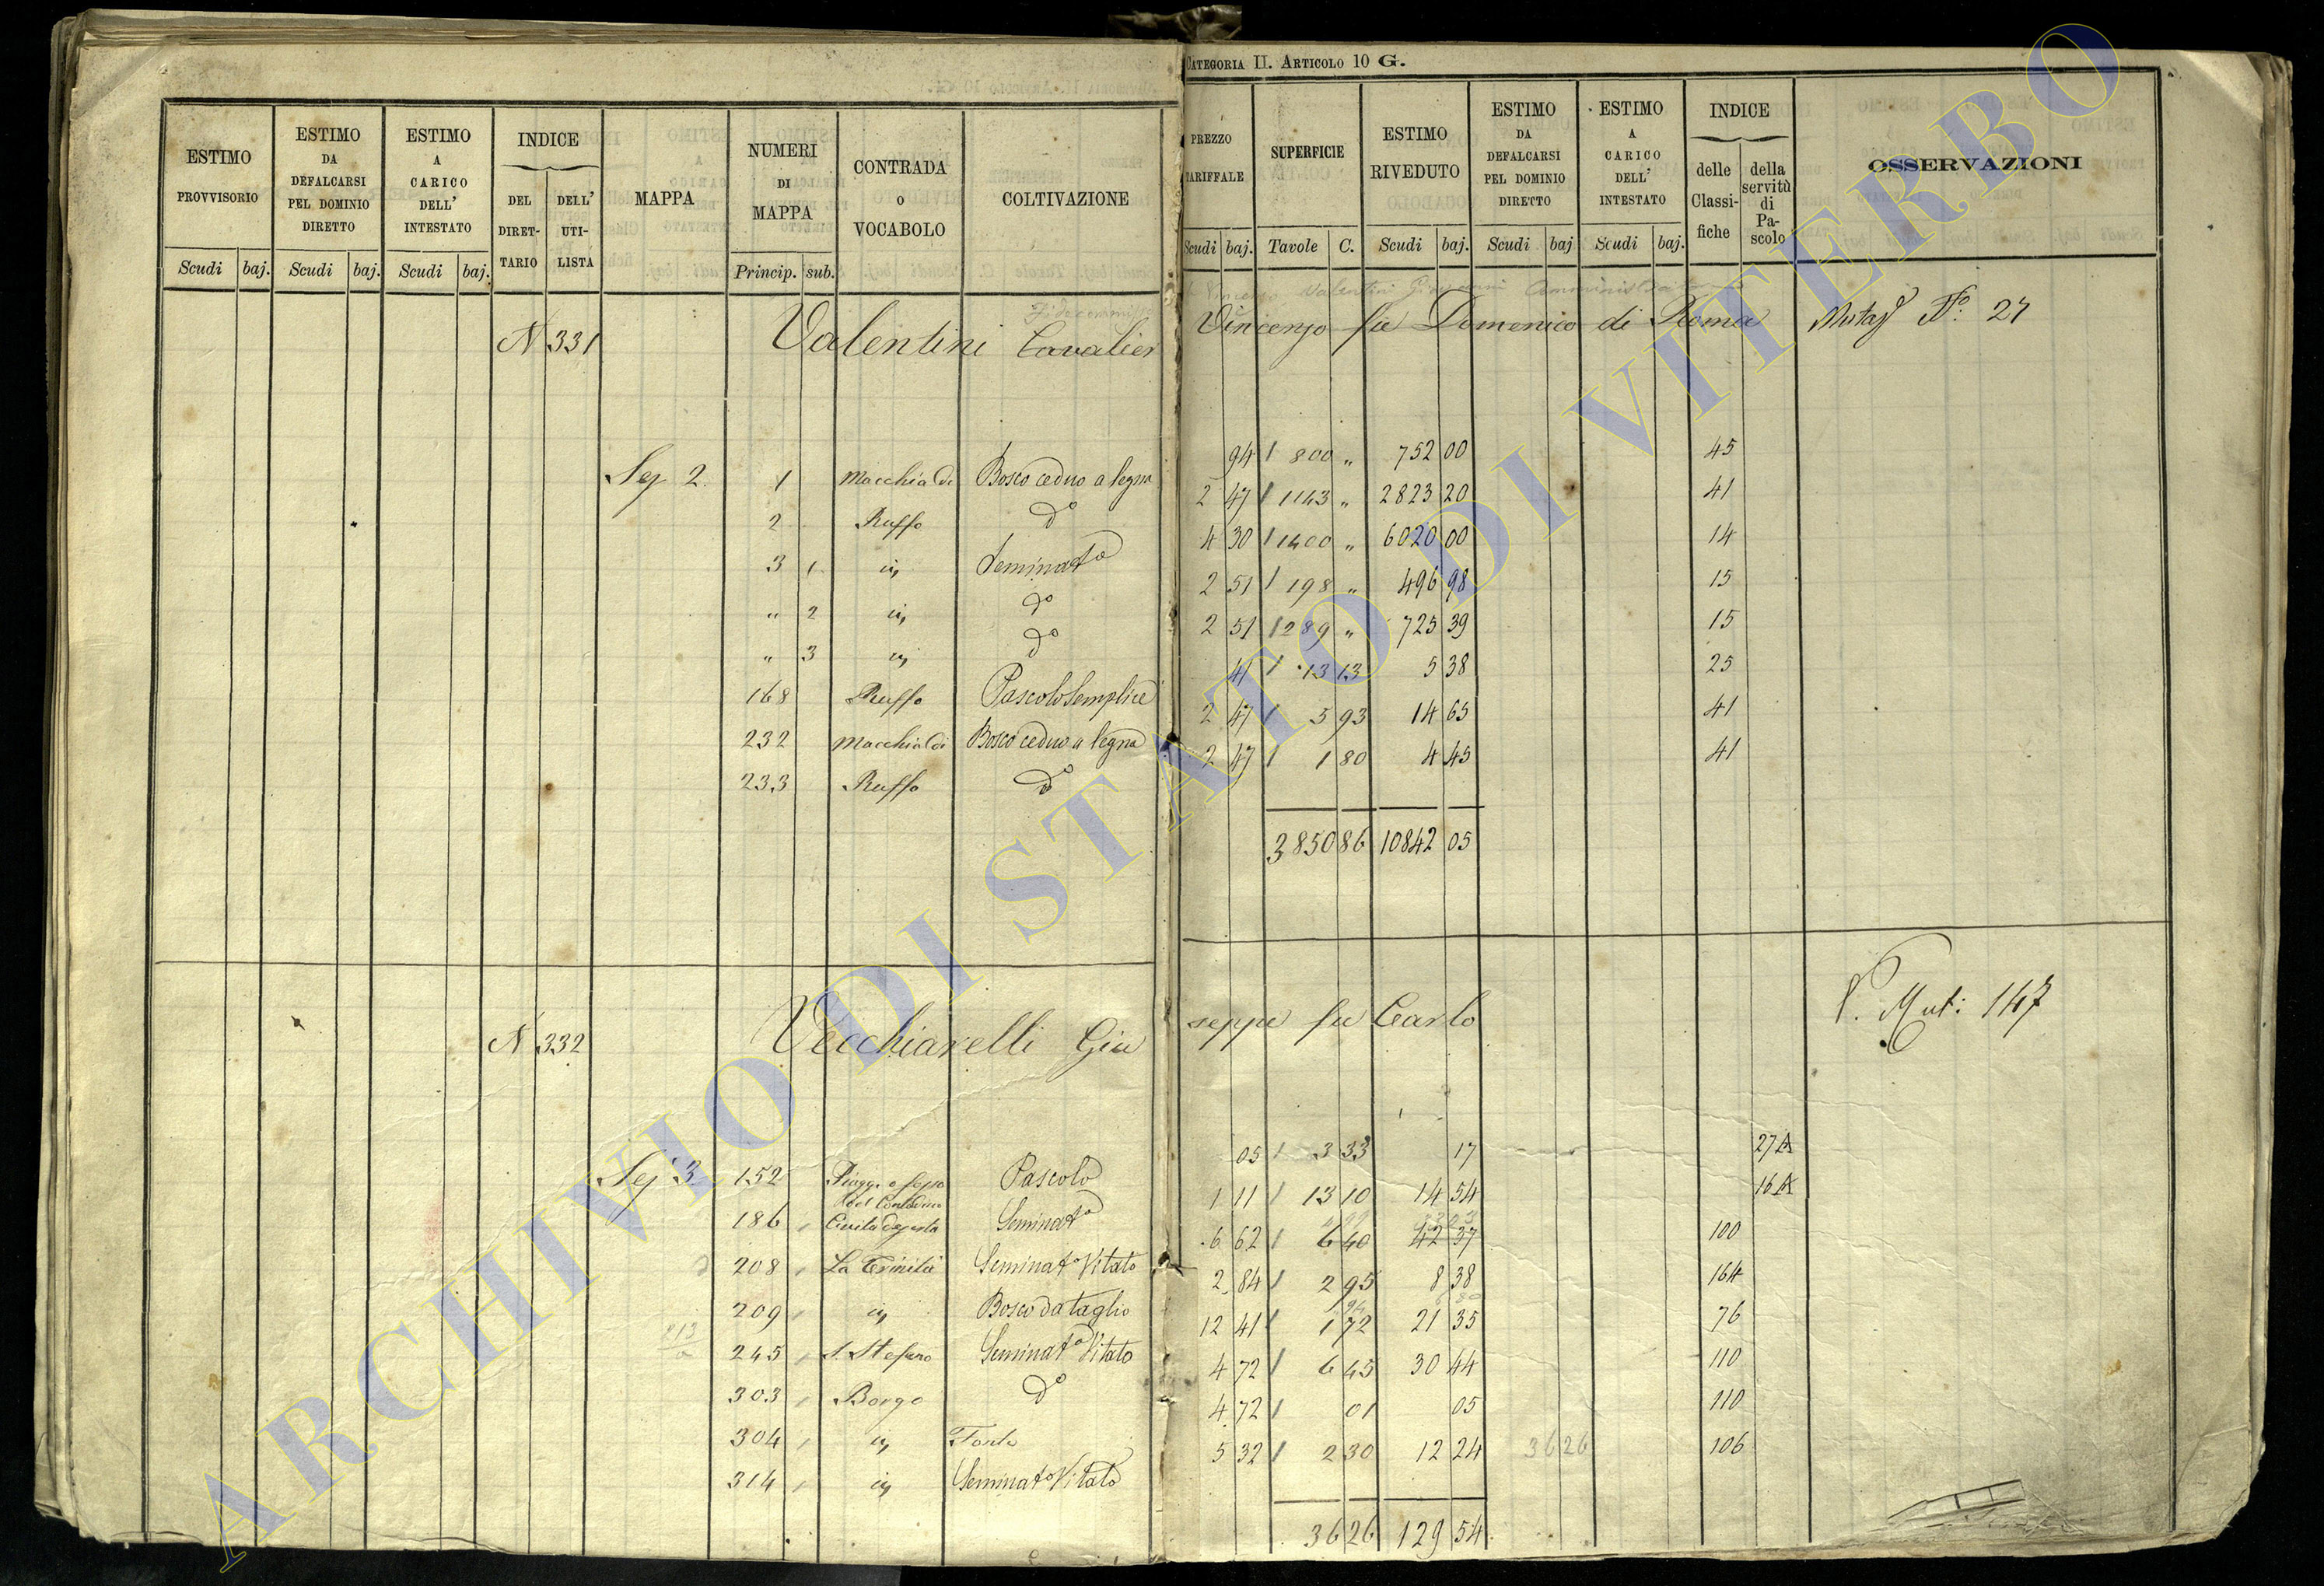 CATEGORIA II. ARTICOLO 10 G.
ESTIMO PROVVISORIO Scudi baj.
ESTIMO DA DEFALCARSI PEL DOMINIO DIRETTO Scudi baj.
ESTIMO A CARICO DELL' INTESTATO Scudi baj.
INDICE DEL DIRET-TARIO DELL' UTI-LISTA
MAPPA
NUMERI DI MAPPA Princip. sub.
CONTRADA O VOCABOLO
COLTIVAZIONE
PREZZO TARIFFALE Scudi baj.
SUPERFICIE Tavole C.
ESTIMO RIVEDUTO Scudi baj.
ESTIMO DA DEFALCARSI PEL DOMINIO DIRETTO Scudi baj
ESTIMO A CARICO DELL' INTESTATO Scudi baj.
INDICE delle Classi-fiche della servitù di Pa-scolo
OSSERVAZIONI
Vincenzo Valentini Giovanni Amministratore
N 331 Valentini Cavalier Vincenzo fu Domenico di Roma N.º 27
Sez 2. 1 Macchia di Bosco ceduo a legna 94 800 " 752 00 45
2 Ruffo dº 2 47 1143 " 2823 20 41
3 1 in Seminatº 4 30 1400 " 6020 00 14
" 2 in dº 2 51 198 " 496 98 15
" 3 in dº 2 51 289 " 725 39 15
168 Ruffo Pascolo Semplice 41 13 13 5 38 25
232 Macchia di Bosco ceduo a legna 2 47 5 93 14 65 41
233 Ruffo dº 2 47 1 80 4 45 41
3850 86 10842 05
N 332 Vecchiarelli Giuseppe fu Carlo V. Mut: 147
Sez 3 152 Pascolo 05 3 33 17 27 A
186 Civita Seminatº 1 11 13 10 14 54 16 A
208 La Trinità Seminatº Vitato 6 62 6 40 42 37 100
209 in Bosco da taglio 2 84 2 95 8 38 164
245 S. Stefano Seminatº Vitato 12 41 1 72 21 35 76
303 Borgo dº 4 72 6 45 30 44 110
304 in 4 72 01 05 110
314 in Seminatº Vitato 5 32 2 30 12 24 36 26 106
36 26 129 54
ARCHIVIO DI STATO DI VITERBO